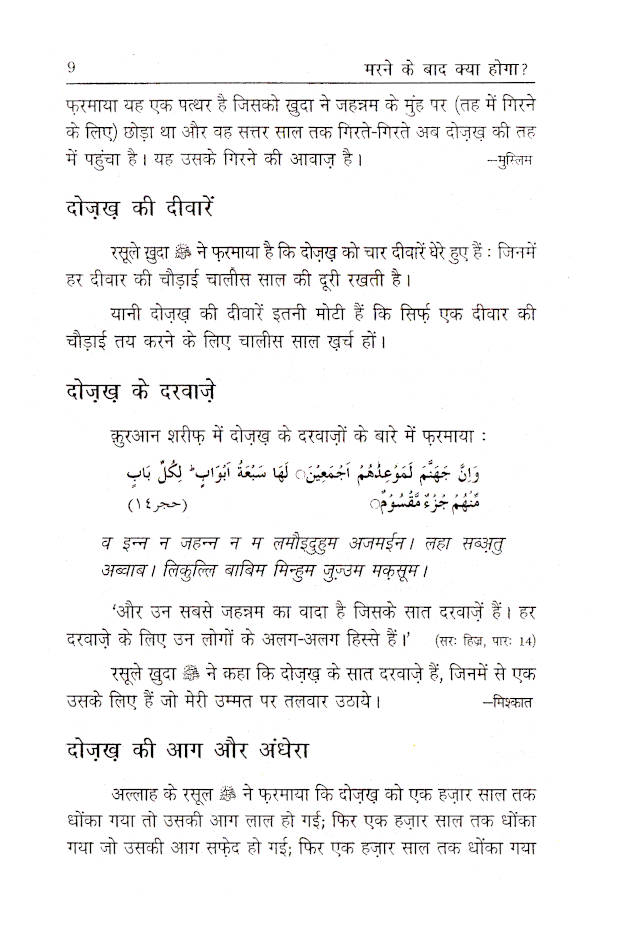 9 मरने के बाद क्या होगा?
फ़रमाया यह एक पत्थर है जिसको ख़ुदा ने जहन्नम के मुंह पर (तह में गिरने
के लिए) छोड़ा था और वह सत्तर साल तक गिरते-गिरते अब दोज़ख़ की तह
में पहुंचा है। यह उसके गिरने की आवाज़ है। –मुस्लिम
दोज़ख़ की दीवारें
रसूले ख़ुदा ﷺ ने फ़रमाया है कि दोज़ख़ को चार दीवारें घेरे हुए हैं : जिनमें
हर दीवार की चौड़ाई चालीस साल की दूरी रखती है।
यानी दोज़ख़ की दीवारें इतनी मोटी हैं कि सिर्फ़ एक दीवार की
चौड़ाई तय करने के लिए चालीस साल ख़र्च हों।
दोज़ख़ के दरवाज़े
क़ुरआन शरीफ़ में दोज़ख़ के दरवाज़ों के बारे में फ़रमाया :
وَاِنَّ جَهَنَّمَ لَمَوْعِدُهُمْ اَجْمَعِيْنَ○ لَهَا سَبْعَةُ اَبْوَابٍ ؕ لِكُلِّ بَابٍ
مِّنْهُمْ جُزْءٌ مَّقْسُوْمٌ○ (حجر ١٤)
व इन्न न जहन्न न म लमौइदुहुम अजमईन। लहा सब्अ़तु
अब्वाब। लिकुल्लि बाबिम मिन्हुम जुज़्उम मक़सूम।
‘और उन सबसे जहन्नम का वादा है जिसके सात दरवाज़ें हैं। हर
दरवाज़े के लिए उन लोगों के अलग-अलग हिस्से हैं।’ (सरः हिज्र, पारः 14)
रसूले ख़ुदा ﷺ ने कहा कि दोज़ख़ के सात दरवाज़े हैं, जिनमें से एक
उसके लिए हैं जो मेरी उम्मत पर तलवार उठाये। –मिश्कात
दोज़ख़ की आग और अंधेरा
अल्लाह के रसूल ﷺ ने फ़रमाया कि दोज़ख़ को एक हज़ार साल तक
धोंका गया तो उसकी आग लाल हो गई; फिर एक हज़ार साल तक धोंका
गया जो उसकी आग सफ़ेद हो गई; फिर एक हज़ार साल तक धोंका गया